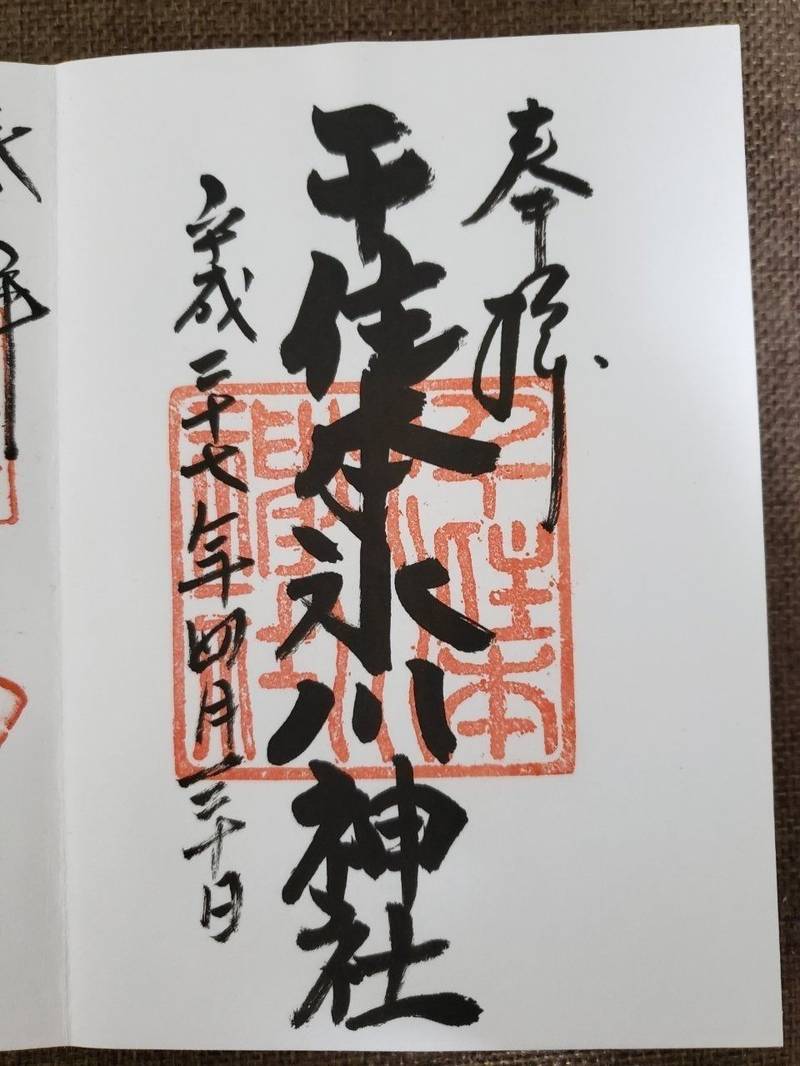 奉拝
千住本氷川神社
平成二十七年四月三十日